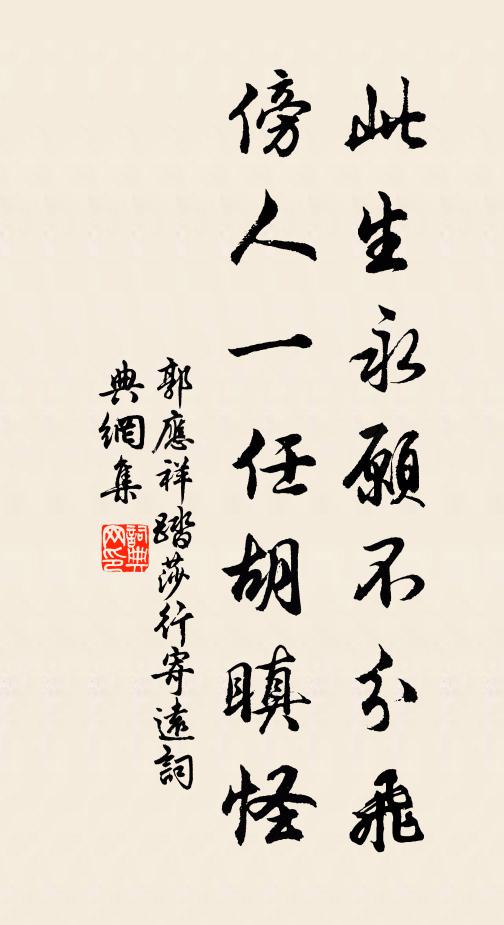 此生永願不分飛
傍人一任胡瞋怪
郭應祥踏莎行寄遠詞
典網集
詞典網印